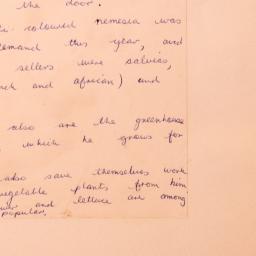 the door.
coloured nemesia was
demand this year, and
sellers were salvias,
and african) and
also are the greenhouse
which he grows for
also save themselves work
vegetable plants from him
and lettuce are among
popular.